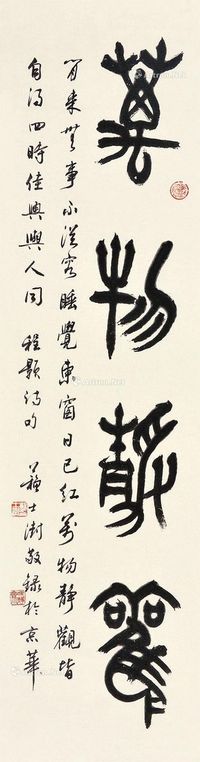 萬物靜觀
閒來無事不從容睡覺東窗日已紅萬物靜觀皆
自得四時佳興與人同 程顥詩句 蘇士澍敬錄於京華